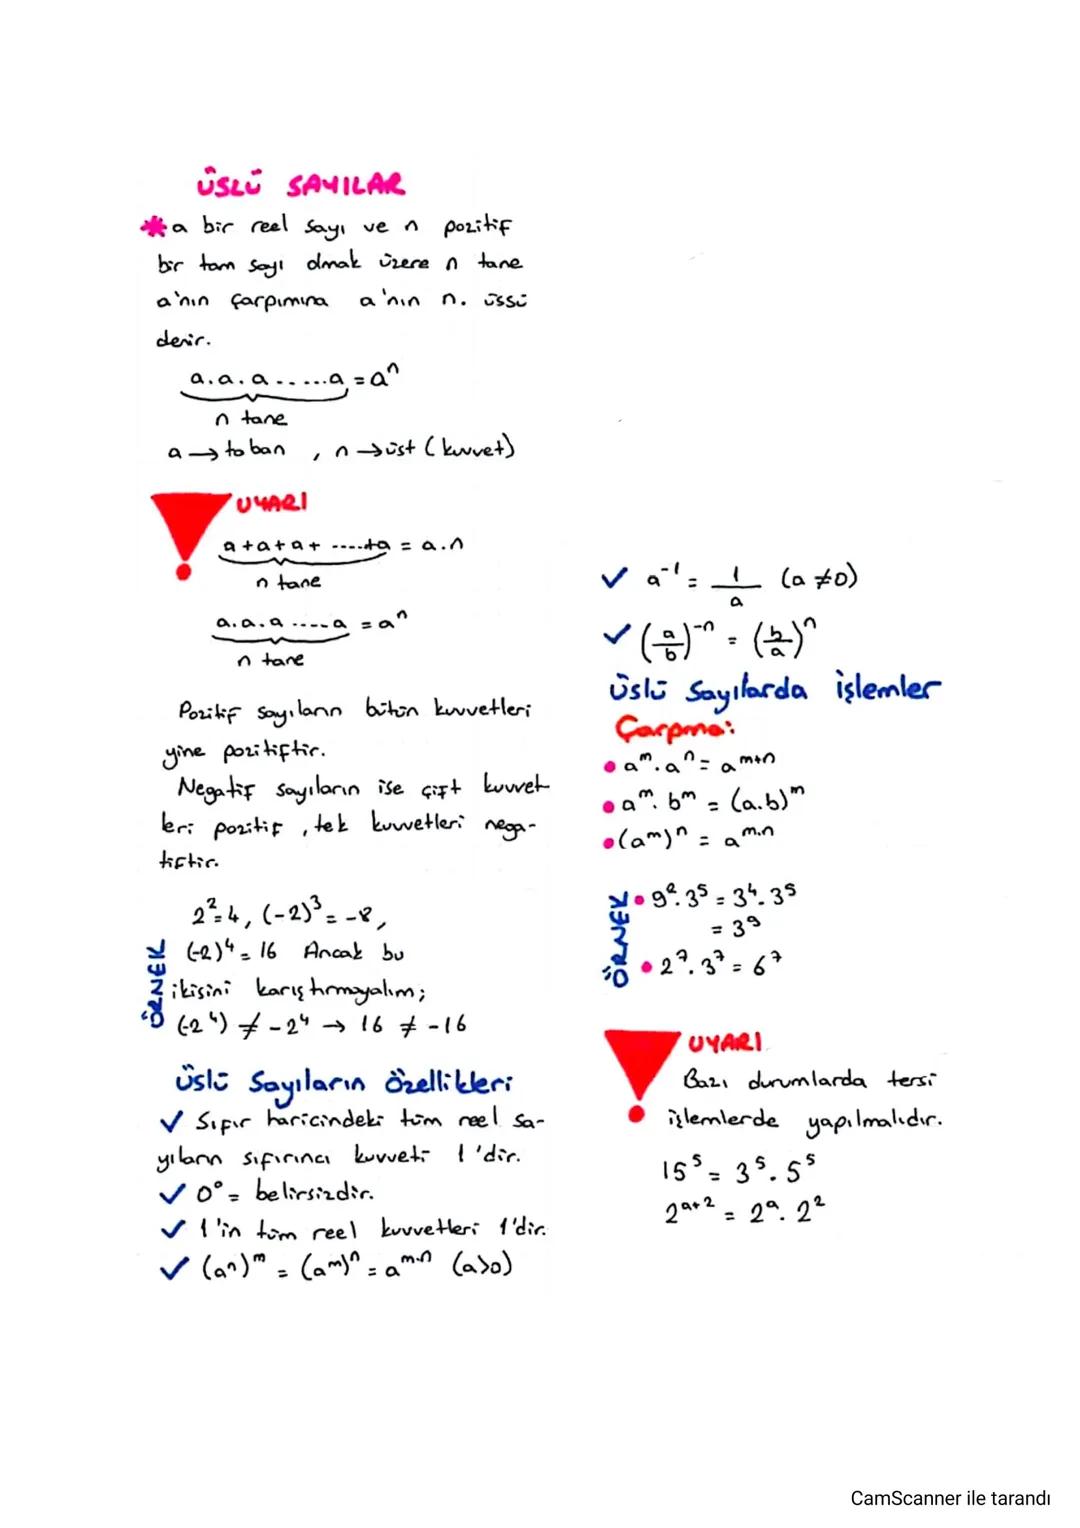 ÜSLÜ SAYILAR
* a bir reel sayı ve n pozitif
bir tam sayı olmak üzere n tane
a'nın çarpımına a'nın n. üssü
denir.
a.a.a.....a = aⁿ
n tane
a → taban , n → üst (kuvvet)
UYARI
a+a+a+ .....+a = a.n
n tane
a.a.a.....a = aⁿ
n tane
Pozitif sayıların bütün kuvvetleri
yine pozitiftir.
Negatif sayıların ise çift kuvvet
leri pozitif , tek kuvvetleri nega-
tiftir.
ÖRNEK
2²=4, (-2)³ = -8,
(-2)⁴ = 16 Ancak bu
ikisini karıştırmayalım;
(-2⁴) ≠ -2⁴ → 16 ≠ -16
Üslü Sayıların Özellikleri
✓ Sıfır haricindeki tüm reel sa-
yıların sıfırıncı kuvveti 1'dir.
✓ 0⁰ = belirsizdir.
✓ 1'in tüm reel kuvvetleri 1'dir.
✓ (aⁿ)ᵐ = (aᵐ)ⁿ = aᵐ·ⁿ (a>0)
✓ a⁻¹ = 1/a (a ≠ 0)
✓ (a/b)⁻ⁿ = (b/a)ⁿ
Üslü Sayılarda işlemler
Çarpma:
• aᵐ.aⁿ = aᵐ⁺ⁿ
• aᵐ.bᵐ = (a.b)ᵐ
• (aᵐ)ⁿ = aᵐ·ⁿ
ÖRNEK
• 9².3⁵ = 3⁴.3⁵
= 3⁹
• 2⁷.3⁷ = 6⁷
UYARI
Bazı durumlarda tersi
işlemlerde yapılmalıdır.
15⁵ = 3⁵.5⁵
2ᵃ⁺² = 2ᵃ.2²
CamScanner ile tarandı